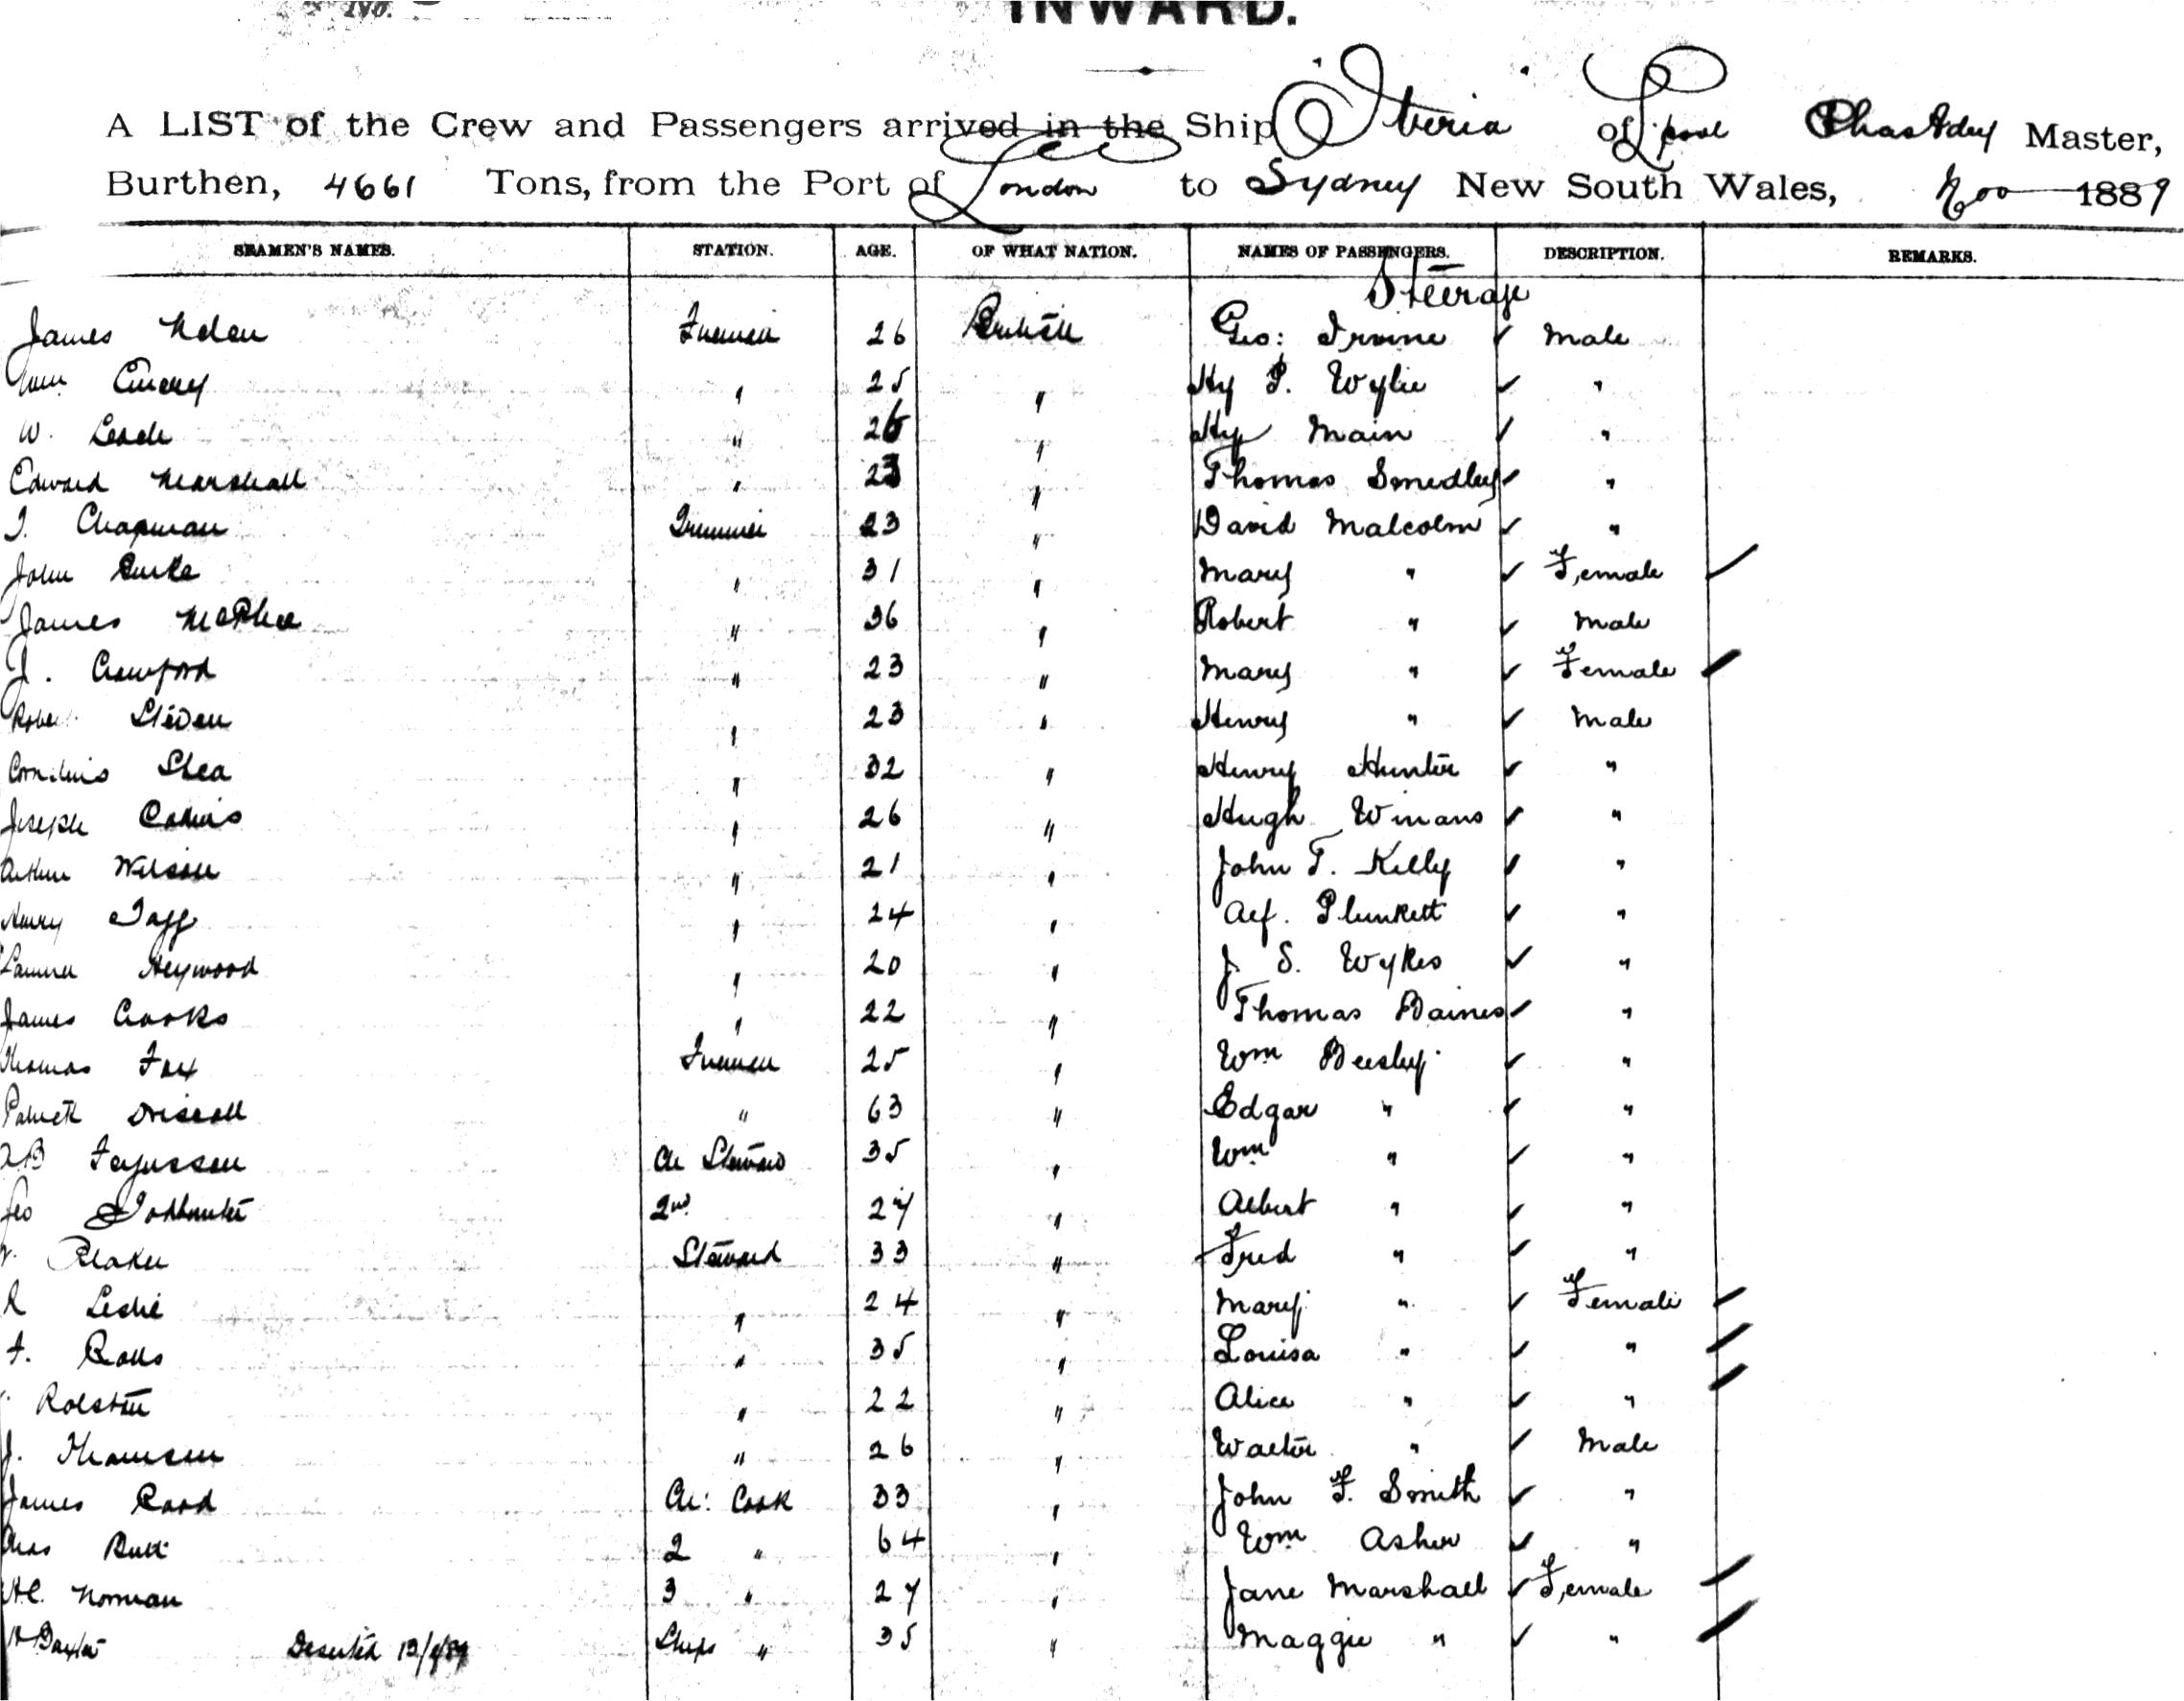 No.
INWARD.
A LIST of the Crew and Passengers arrived in the Ship "Iberia" of L'pool Master,
Burthen, 4661 Tons, from the Port of London to Sydney New South Wales, Nov 1889
SEAMEN'S NAMES. STATION. AGE. OF WHAT NATION. NAMES OF PASSENGERS. DESCRIPTION. REMARKS.
Steerage
James Fireman 26 British Geo: Irvine ✓ Male
25 " Hy P. Wylie ✓ "
W. " 26 " Hy Main ✓ "
Edward Marshall " 23 " Thomas Smedley ✓ "
J. Chapman Trimmer 23 " David Malcolm ✓ "
John Burke " 31 " Mary " ✓ Female
James McPhee " 36 " Robert " ✓ Male
J. Crawford " 23 " Mary " ✓ Female
Robert Steven " 23 " Henry " ✓ Male
Cornelius Shea " 32 " Henry Hunter ✓ "
Joseph " 26 " Hugh Winans ✓ "
Arthur Wilson " 21 " John T. Kelly ✓ "
Henry Tagg " 24 " Alf. Plunkett ✓ "
Heywood " 20 " J. S. Wykes ✓ "
James Crooks " 22 " Thomas Baines ✓ "
Thomas Fox Fireman 25 " Wm Beesley ✓ "
Patrick Driscoll " 63 " Edgar " ✓ "
Fergusson Ch Steward 35 " Wm " ✓ "
Geo 2nd 27 " Albert " ✓ "
Blaker Steward 33 " Fred " ✓ "
R Leslie " 24 " Mary " ✓ Female
F. " 35 " Louisa " ✓ "
Rolston " 22 " Alice " ✓ "
J. Thomson " 26 " Walter " ✓ Male
James Rood Ch: Cook 33 " John F. Smith ✓ "
Chas 2 " 64 " Wm Asher ✓ "
H.C. Norman 3 " 27 " Jane Marshall ✓ Female
Baxter Deserted Ships " 35 " Maggie " ✓ "